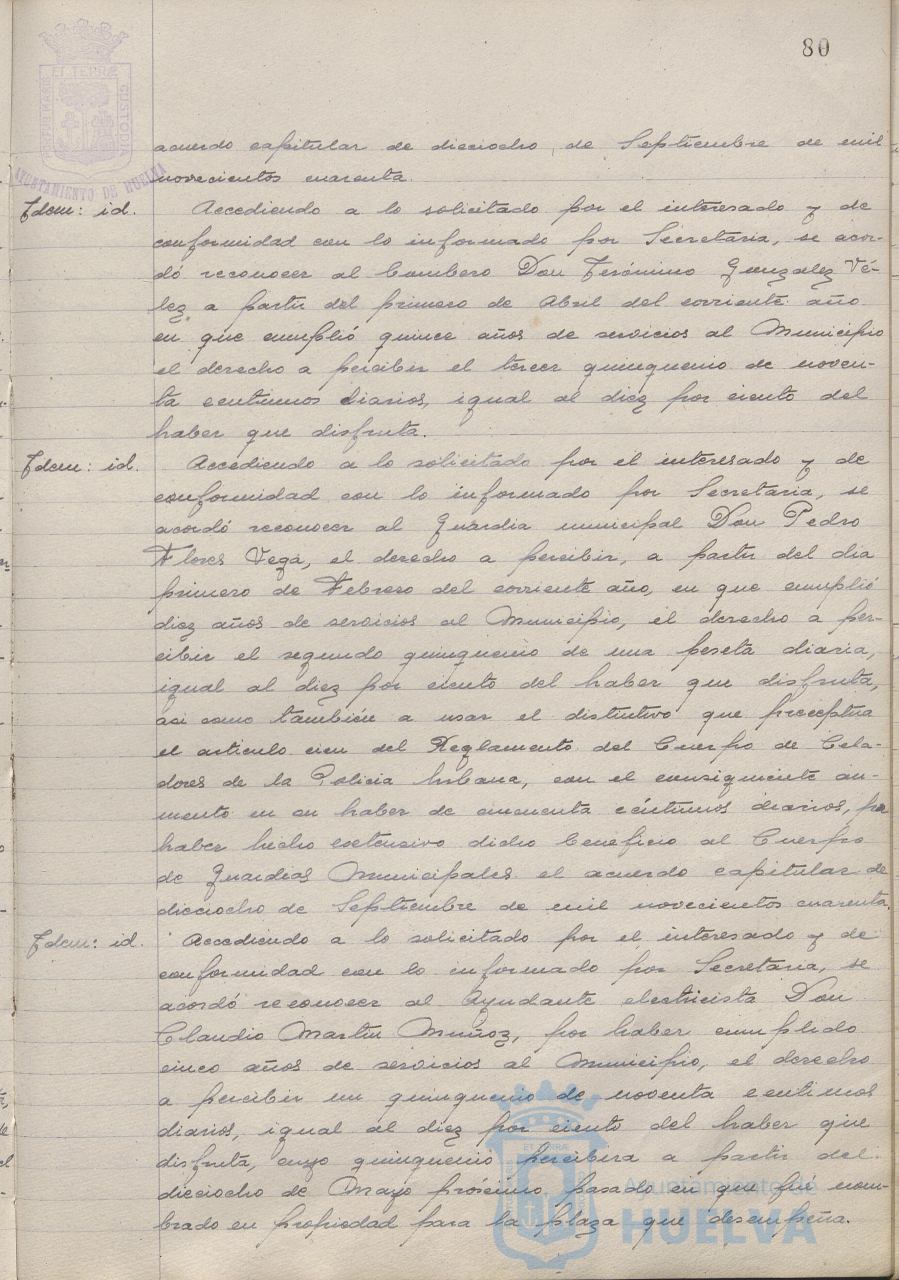 80
ET TERRÆ
PORTUS MARIS
CUSTODIA
AYUNTAMIENTO DE HUELVA
acuerdo capitular de dieciocho, de Septiembre de mil
novecientos cuarenta.
Idem: id. Accediendo a lo solicitado por el interesado y de
conformidad con lo informado por Secretaria, se acor-
dó reconocer al bombero Don Jerónimo Gonzalez Vé-
lez a partir del primero de Abril del corriente año
en que cumplió quince años de servicios al Municipio
el derecho a percibir el tercer quinquenio de noven-
ta centimos diarios, igual al diez por ciento del
haber que disfruta.
Idem: id. Accediendo a lo solicitado por el interesado y de
conformidad con lo informado por Secretaria, se
acordó reconocer al Guardia municipal Don Pedro
Flores Vega, el derecho a percibir, a partir del dia
primero de Febrero del corriente año, en que cumplió
diez años de servicios al Municipio, el derecho a per-
cibir el segundo quinquenio de una peseta diaria,
igual al diez por ciento del haber que disfruta,
asi como también a usar el distintivo que preceptua
el articulo cien del Reglamento del Cuerpo de Cela-
dores de la Policia Urbana, con el consiguiente au-
mento en su haber de cincuenta céntimos diarios, por
haber hecho extensivo dicho beneficio al Cuerpo
de Guardias Municipales el acuerdo capitular de
dieciocho de Septiembre de mil novecientos cuarenta.
Idem: id. Accediendo a lo solicitado por el interesado y de
conformidad con lo informado por Secretaria, se
acordó reconocer al Ayudante electricista Don
Claudio Martin Muñoz, por haber cumplido
cinco años de servicios al Municipio, el derecho
a percibir un quinquenio de noventa centimos
diarios, igual al diez por ciento del haber que
disfruta, cuyo quinquenio percibira a partir del
dieciocho de Mayo próximo pasado en que fué nom-
brado en propiedad para la plaza que desempeña.
Ayuntamiento de
HUELVA